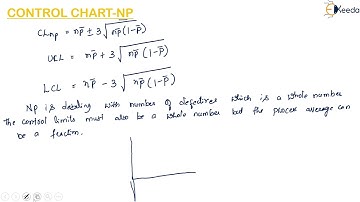 CONTROL CHART-NP
Ekeeda
CLnp = np̄ ± 3√np̄(1-p̄)
UCL = np̄ + 3√np̄(1-p̄)
LCL = np̄ - 3√np̄(1-p̄)
Np is dealing with number of defectives which is a whole number
The control limits must also be a whole number but the process average can
be a fraction.